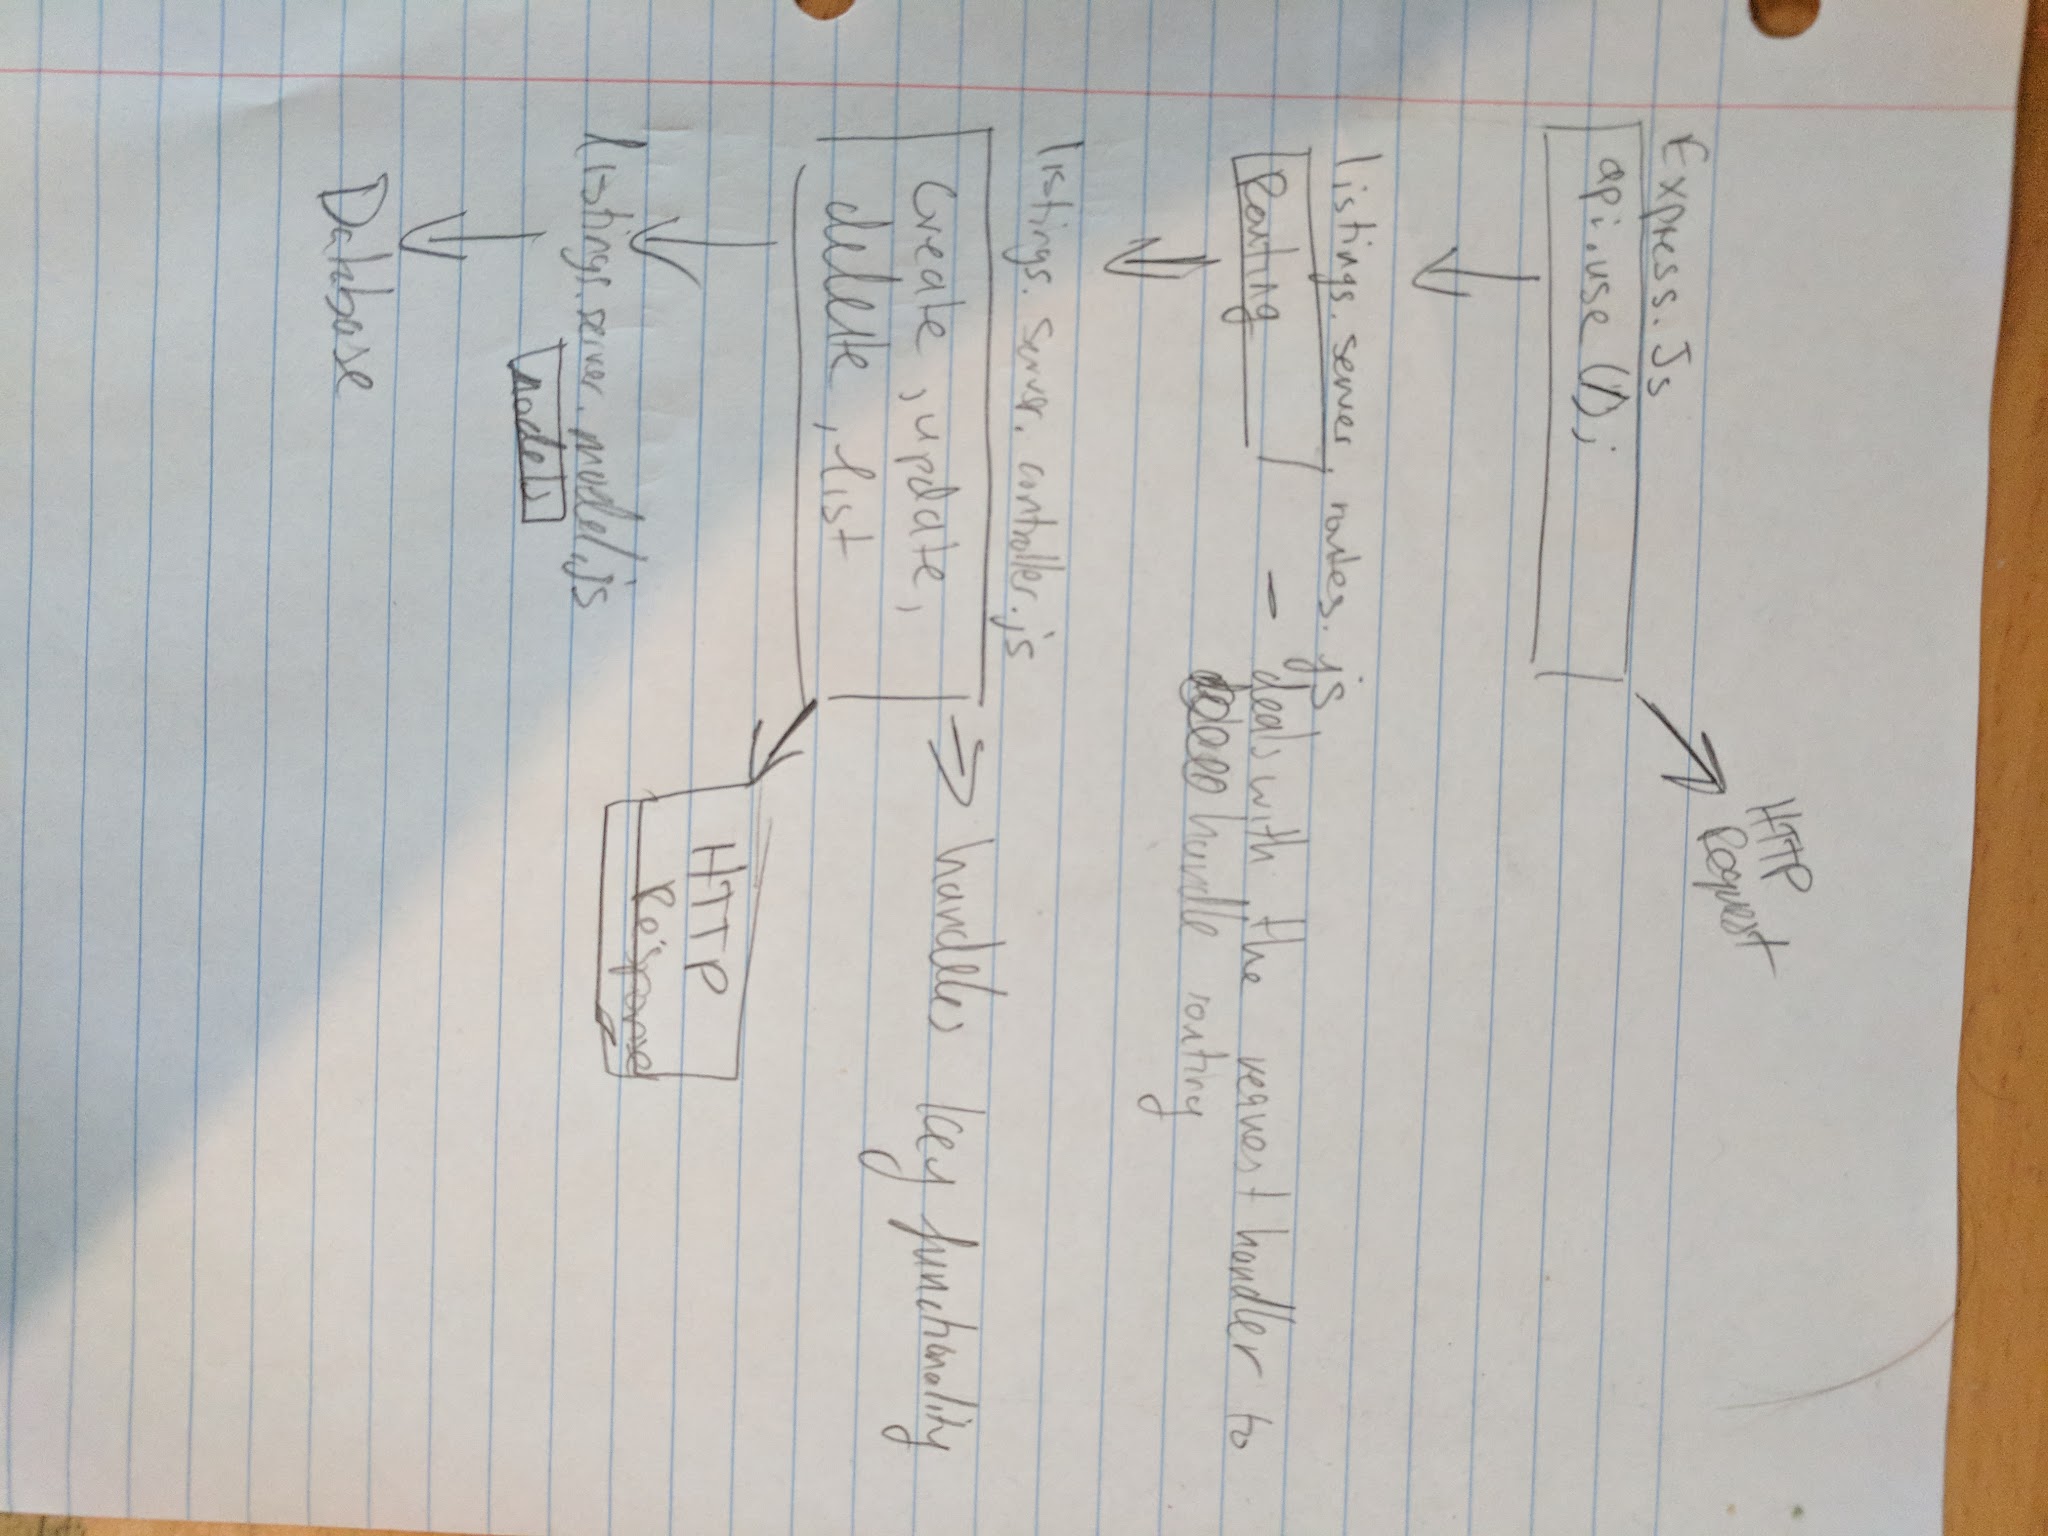 HTTP
Request
Express.Js
api.use(/);
listings.server.routes.js
Routing
- deals with the request handler to
handle routing
listings.server.controller.js
create, update,
delete, list
handles key functionality
HTTP
Response
listings.server.model.js
models
Database